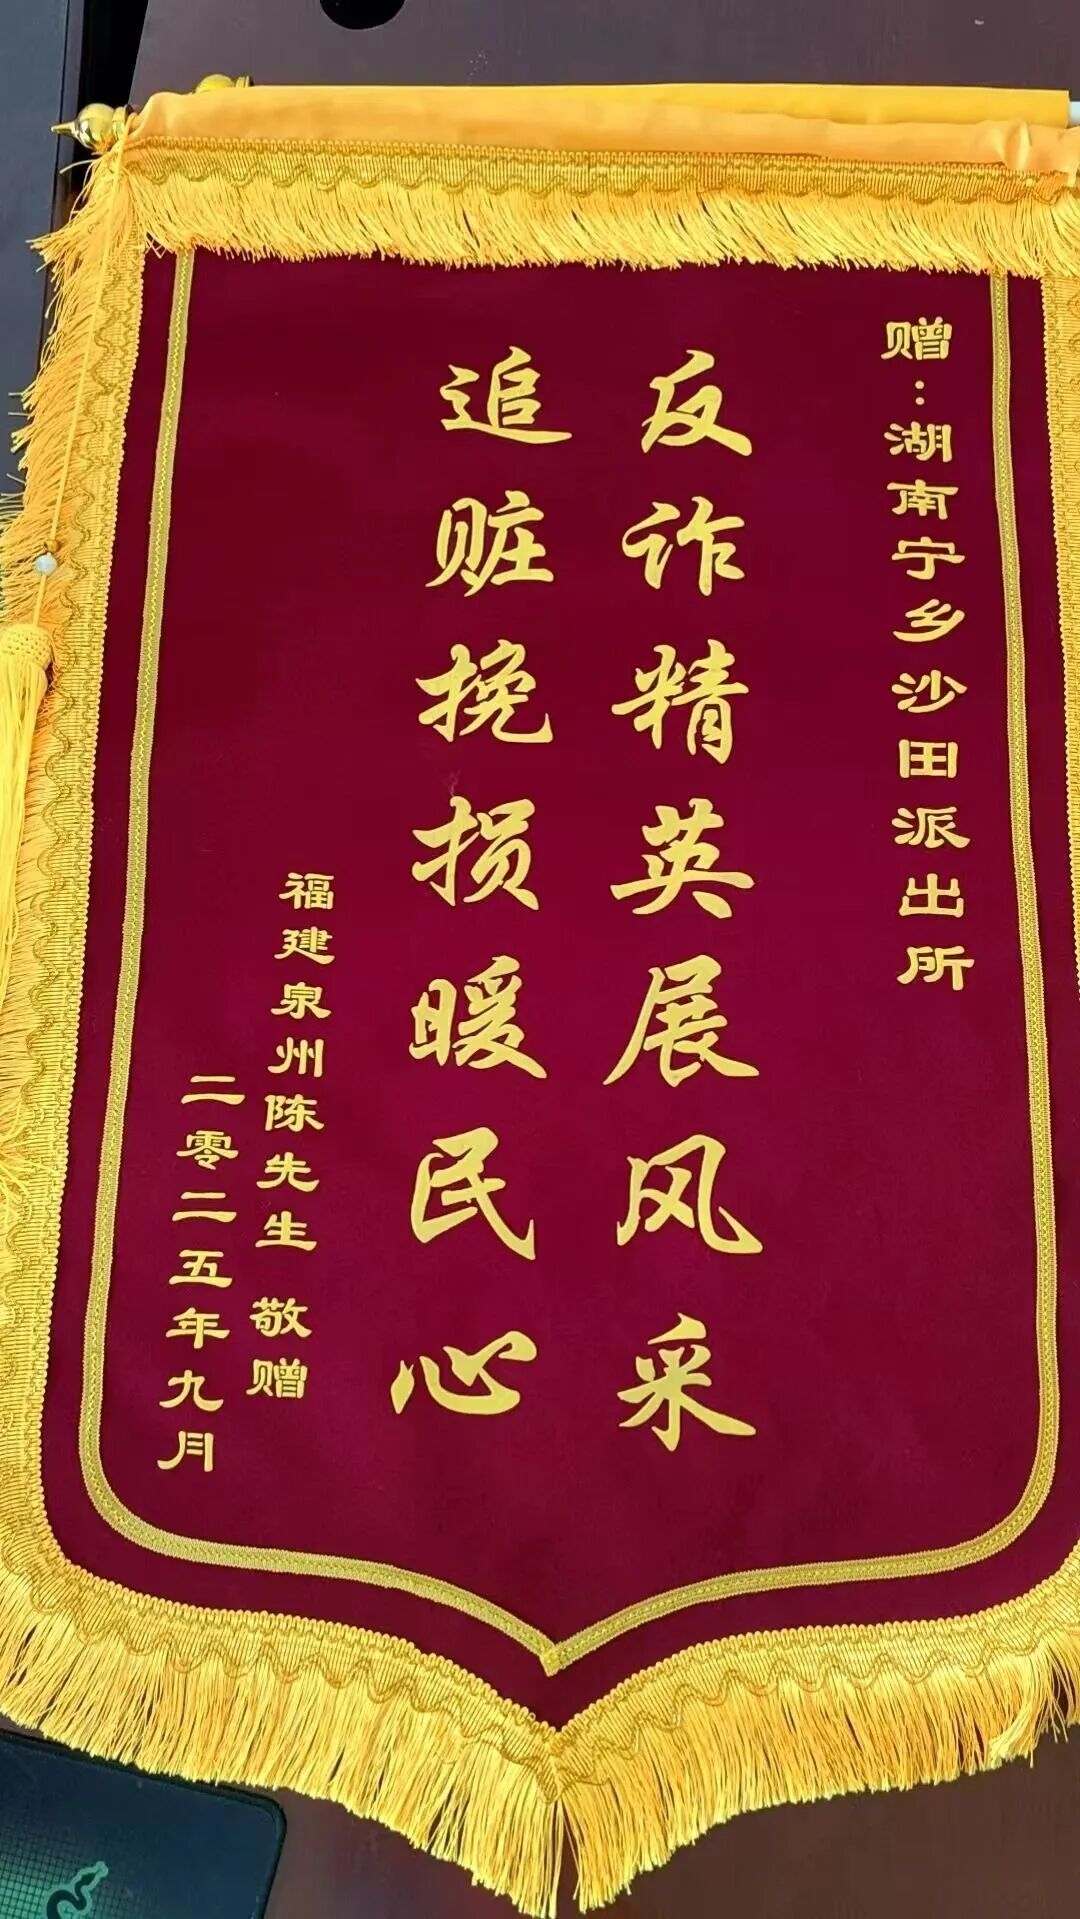 赠:湖南宁乡沙田派出所
反诈精英展风采
追赃挽损暖民心
福建泉州陈先生 敬赠
二零二五年九月